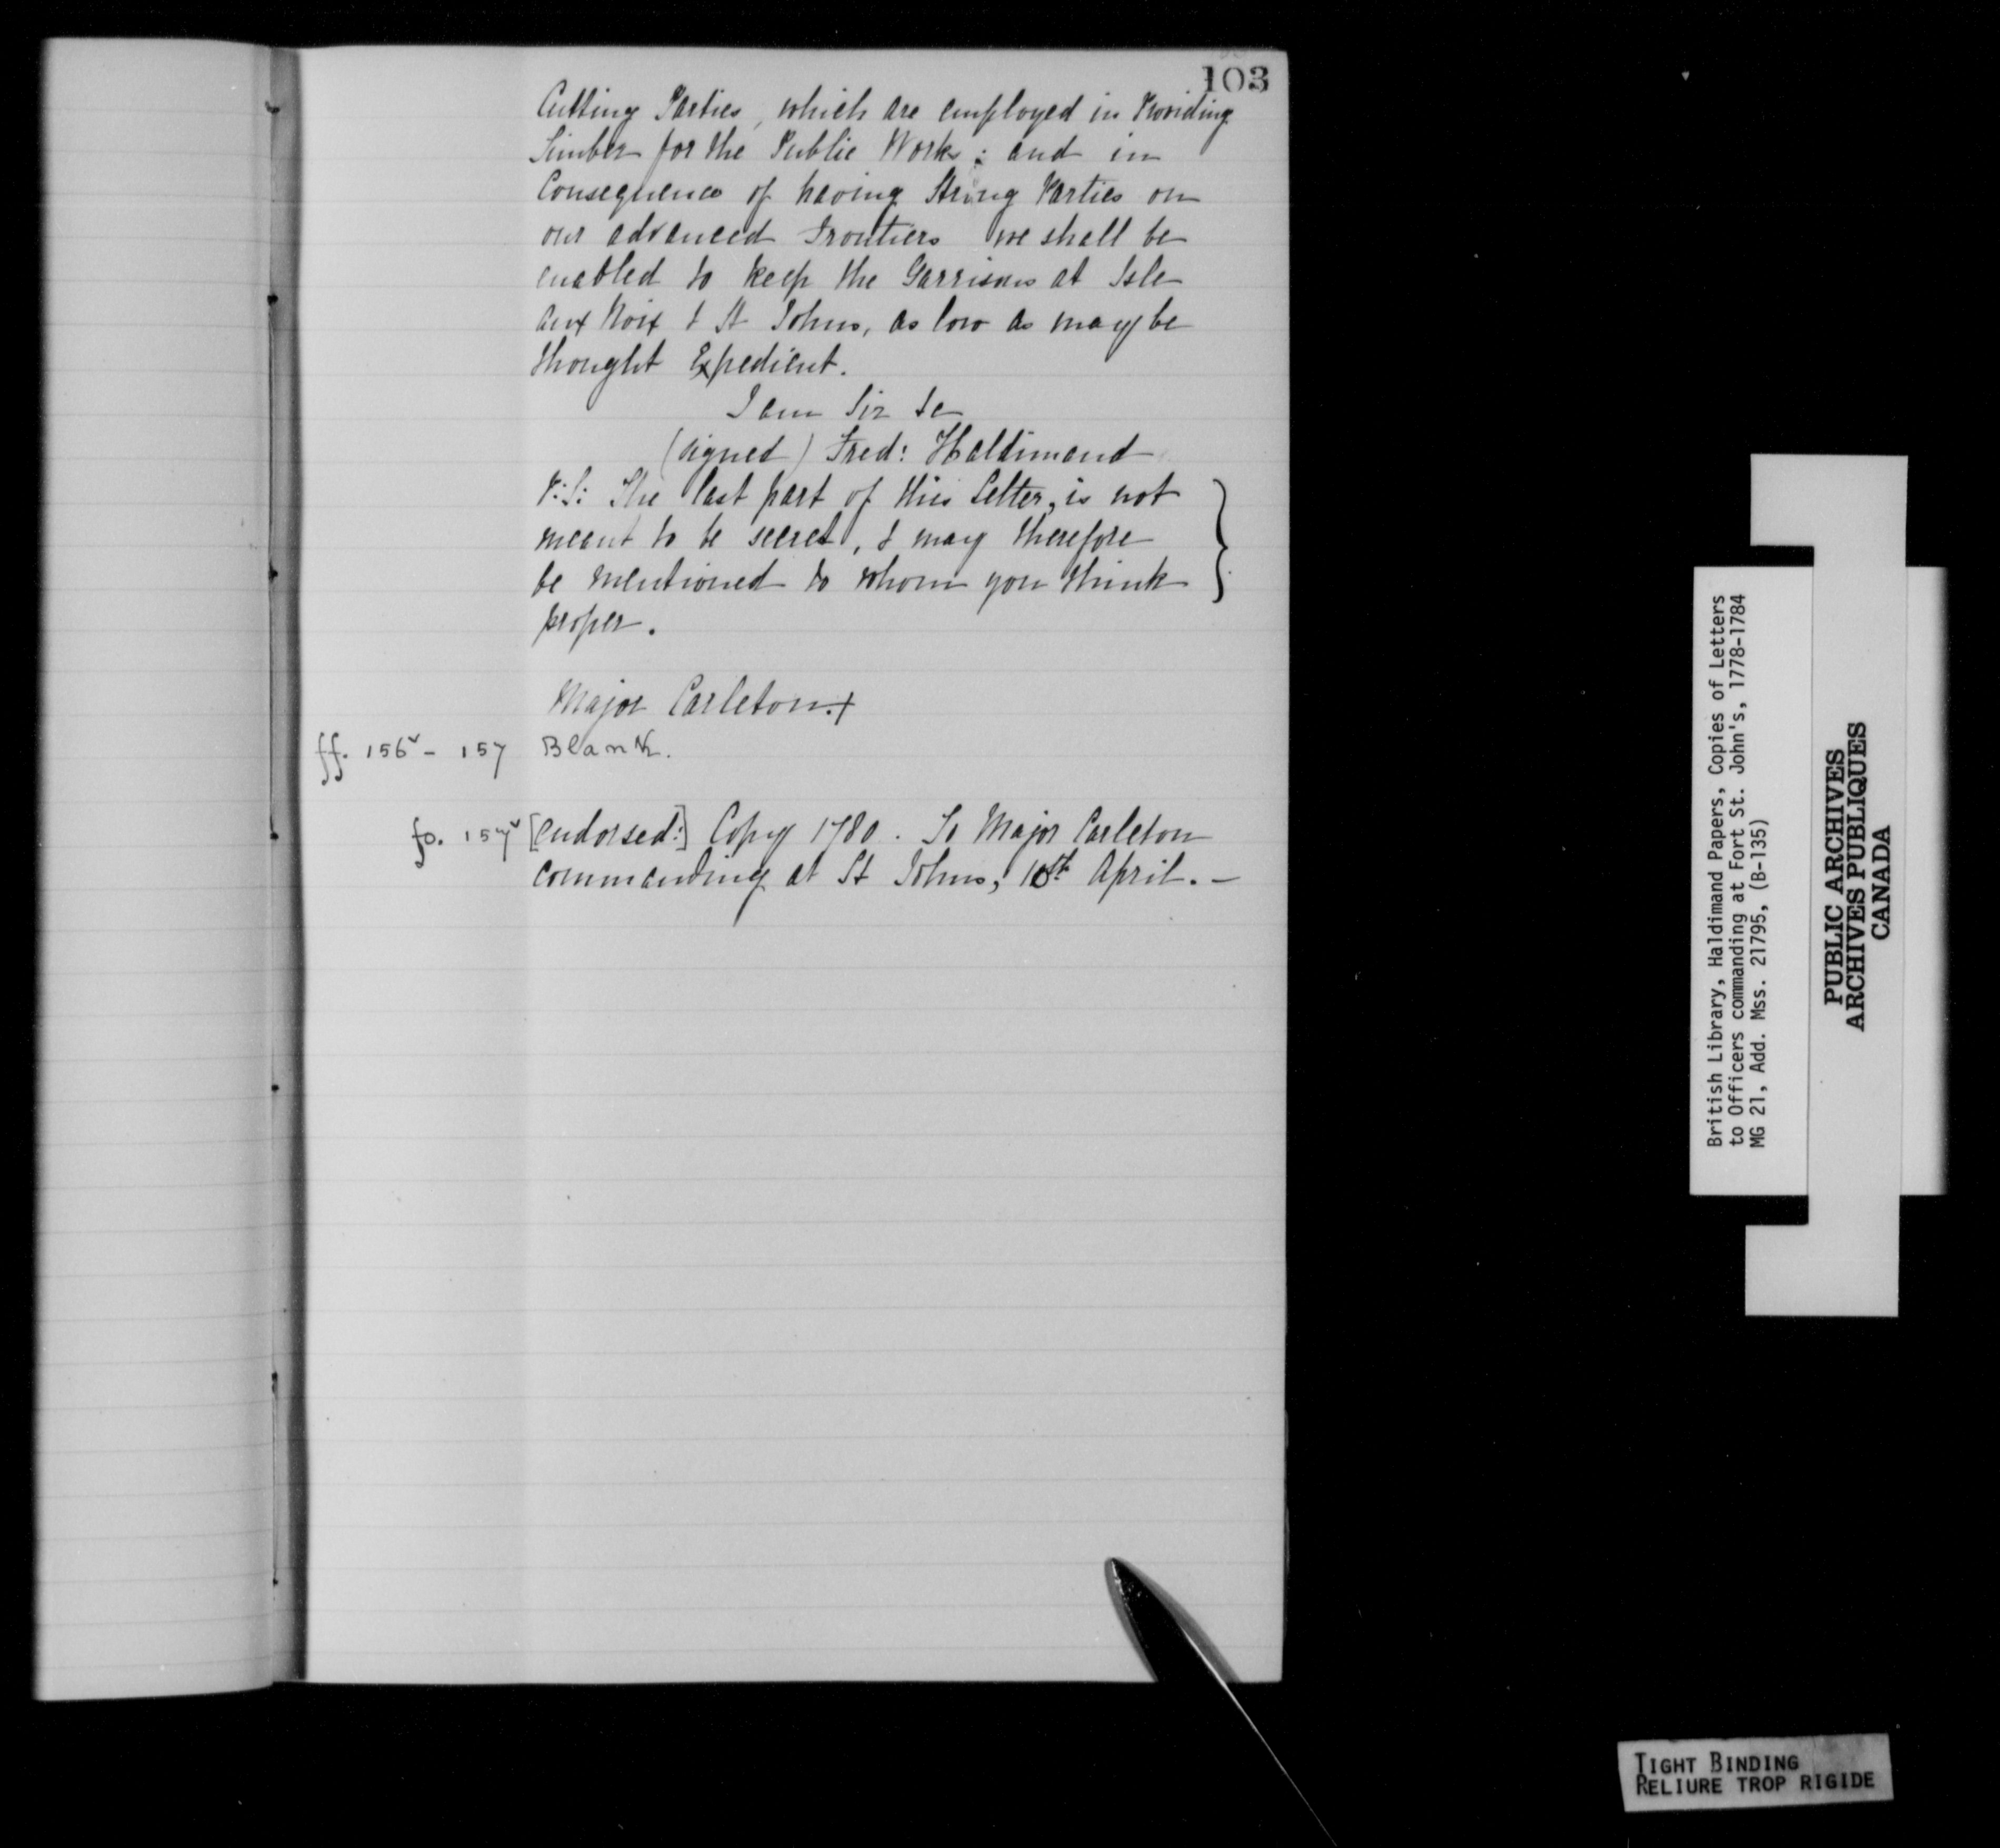 103
Cutting Parties, which are employed in Providing
Timber for the Public Works: and in
Consequence of having Strong Parties on
our advanced Frontiers we shall be
enabled to keep the Garrisons at Isle
aux Noix & St Johns, as low as may be
thought Expedient.
I am Sir &c
(signed) Fred: Haldimand
P:S: The last part of this Letter, is not
meant to be secret, & may therefore
be mentioned to whom you think
proper.
Major Carleton.+
ff. 156v - 157 Blank.
fo. 157v [endorsed:] Copy 1780. To Major Carleton
commanding at St Johns, 10th April. -
British Library, Haldimand Papers, Copies of Letters
to Officers commanding at Fort St. John's, 1778-1784
MG 21, Add. Mss. 21795, (B-135)
PUBLIC ARCHIVES
ARCHIVES PUBLIQUES
CANADA
TIGHT BINDING
RELIURE TROP RIGIDE